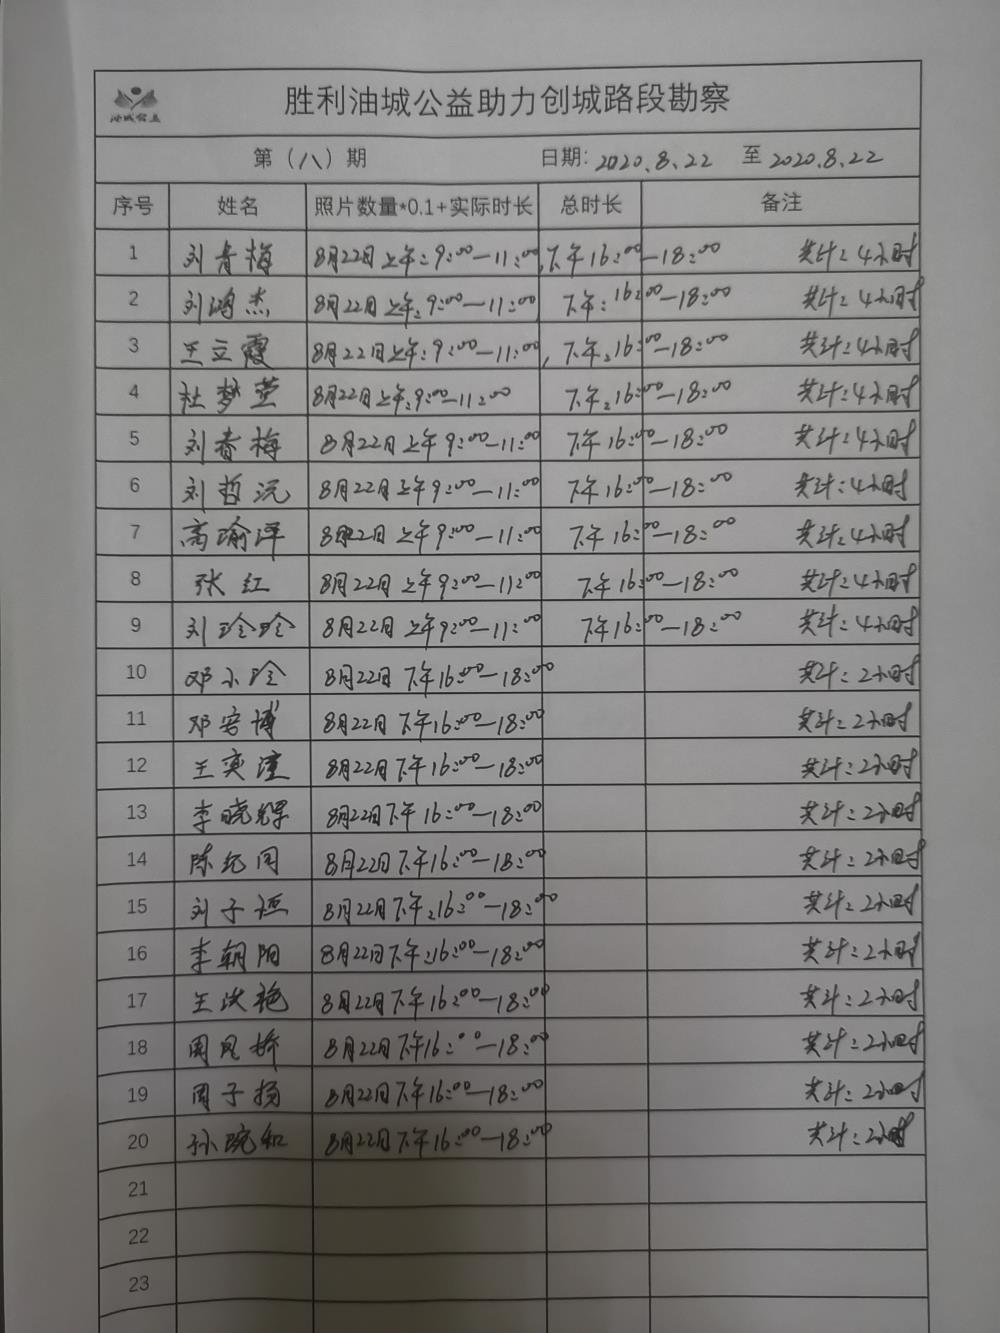 胜利油城公益助力创城路段勘察
油城公益
第（八）期 日期: 2020.8.22 至 2020.8.22
序号 姓名 照片数量*0.1+实际时长 总时长 备注
1 刘青梅 8月22日上午:9:00—11:00,下午16:00—18:00 共计:4小时
2 刘鸿杰 8月22日上午:9:00—11:00 下午:16:00—18:00 共计:4小时
3 王立霞 8月22日上午:9:00—11:00,下午:16:00—18:00 共计:4小时
4 杜梦莹 8月22日上午:9:00—11:00 下午:16:00—18:00 共计:4小时
5 刘春梅 8月22日上午9:00—11:00 下午16:00—18:00 共计:4小时
6 刘哲沅 8月22日上午9:00—11:00 下午16:00—18:00 共计:4小时
7 高瑜泽 8月22日上午9:00—11:00 下午16:00—18:00 共计:4小时
8 张红 8月22日上午9:00—11:00 下午16:00—18:00 共计:4小时
9 刘玲玲 8月22日上午9:00—11:00 下午16:00—18:00 共计:4小时
10 邓小玲 8月22日下午16:00—18:00 共计:2小时
11 邓安博 8月22日下午16:00—18:00 共计:2小时
12 王奕潼 8月22日下午16:00—18:00 共计:2小时
13 李晓 8月22日下午16:00—18:00 共计:2小时
14 陈纪同 8月22日下午16:00—18:00 共计:2小时
15 刘子恒 8月22日下午:16:00—18:00 共计:2小时
16 李朝阳 8月22日下午:16:00—18:00 共计:2小时
17 王洪艳 8月22日下午16:00—18:00 共计:2小时
18 周凤桥 8月22日下午16:00—18:00 共计:2小时
19 周子扬 8月22日下午16:00—18:00 共计:2小时
20 孙琬和 8月22日下午16:00—18:00 共计:2小时
21
22
23